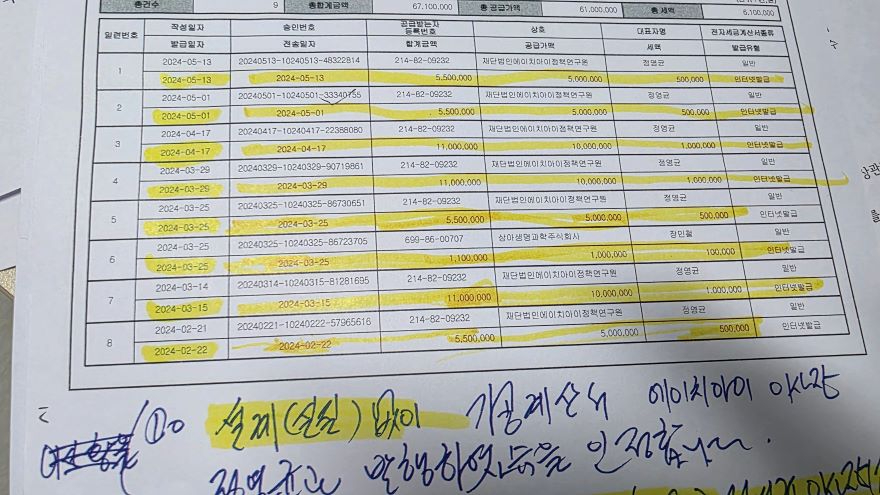 총건수 9 총합계금액 67,100,000 총 공급가액 61,000,000 총 세액 6,100,000
일련번호 작성일자 승인번호 공급받는자 등록번호 상호 대표자명 전자세금계산서종류
발급일자 전송일자 합계금액 공급가액 세액 발급유형
1 2024-05-13 20240513-10240513-48322814 214-82-09232 재단법인에이치아이정책연구원 정영균 일반
2024-05-13 2024-05-13 5,500,000 5,000,000 500,000 인터넷발급
2 2024-05-01 20240501-10240501-33340755 214-82-09232 재단법인에이치아이정책연구원 정영균 일반
2024-05-01 2024-05-01 5,500,000 5,000,000 500,000 인터넷발급
3 2024-04-17 20240417-10240417-22388080 214-82-09232 재단법인에이치아이정책연구원 정영균 일반
2024-04-17 2024-04-17 11,000,000 10,000,000 1,000,000 인터넷발급
4 2024-03-29 20240329-10240329-90719861 214-82-09232 재단법인에이치아이정책연구원 정영균 일반
2024-03-29 2024-03-29 11,000,000 10,000,000 1,000,000 인터넷발급
5 2024-03-25 20240325-10240325-86730651 214-82-09232 재단법인에이치아이정책연구원 정영균 일반
2024-03-25 2024-03-25 5,500,000 5,000,000 500,000 인터넷발급
6 2024-03-25 20240325-10240325-86723705 699-86-00707 삼아생명과학주식회사 장민철 일반
2024-03-25 2024-03-25 1,100,000 1,000,000 100,000 인터넷발급
7 2024-03-14 20240314-10240315-81281695 214-82-09232 재단법인에이치아이정책연구원 정영균 일반
2024-03-15 2024-03-15 11,000,000 10,000,000 1,000,000 인터넷발급
8 2024-02-21 20240221-10240222-57965616 214-82-09232 재단법인에이치아이정책연구원 정영균 일반
2024-02-22 2024-02-22 5,500,000 5,000,000 500,000 인터넷발급
실체(실질) 없이 가공계산서 에이치아이 이사장
정영균과 발행하였음을 인정합니다.